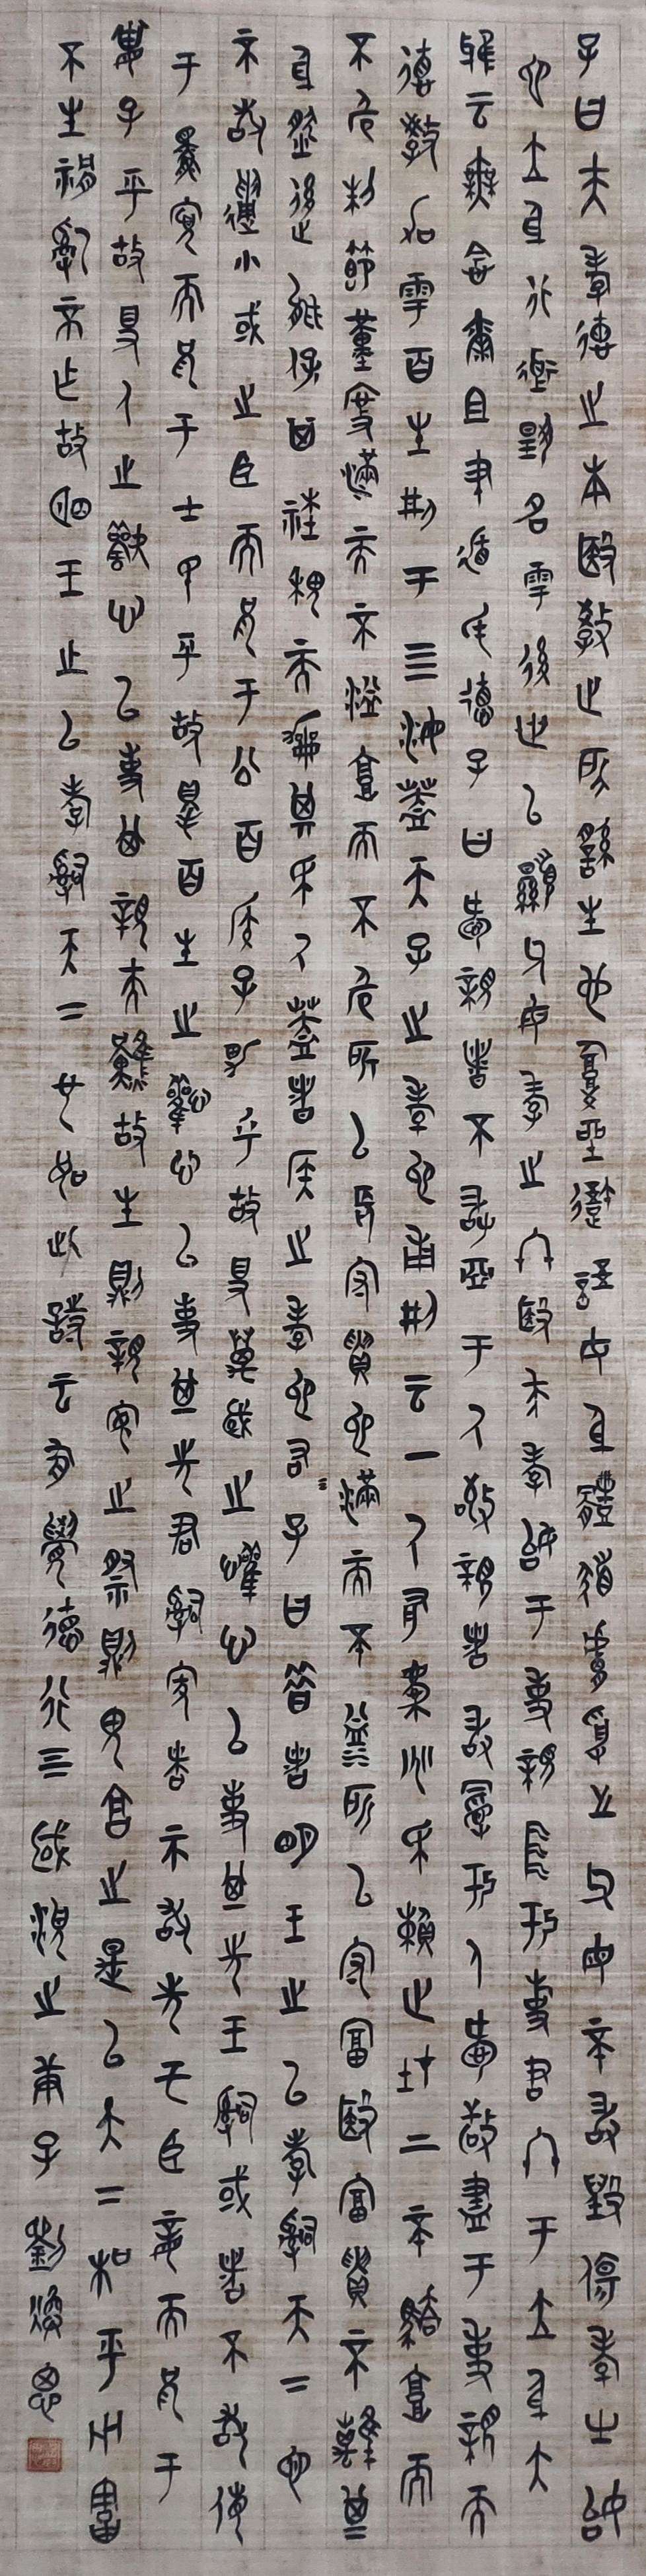 子曰夫孝德之本殹教之所繇生也复坐吾語女身體髮膚受之父母不敢毀傷孝之始
也立身行道揚名雩後世以顯父母孝之終殹夫孝始于事親中于事君終于立身大
雅云無念爾且聿遹氒德子曰愛親者不敢亞于人敬親者不敢慢于人愛敬盡于事親而
德教加雩百生刑于四海蓋天子之孝也甫刑云一人有慶兆民賴之才上不驕高而
不危制節謹度滿而不溢高而不危所以長守貴也滿而不溢所以守富殹富貴不離其
身然後能保其社稷而和其民人蓋者侯之孝也子曰昔者明王之以孝治天二也
不敢遺小或之臣而兄于公侯白子男乎故得萬國之歡心以事其先王治或者不敢侮
于鰥寡而兄于士民乎故得百生之歡心以事其先君治家者不敢失于臣妾而兄于
妻子乎故得人之歡心以事其親夫然故生則親安之祭則鬼亯之是以天二和平災害
不生禍亂不乍故明王之以孝治天二也如此詩云有覺德行四國順之甫子劉煥恩